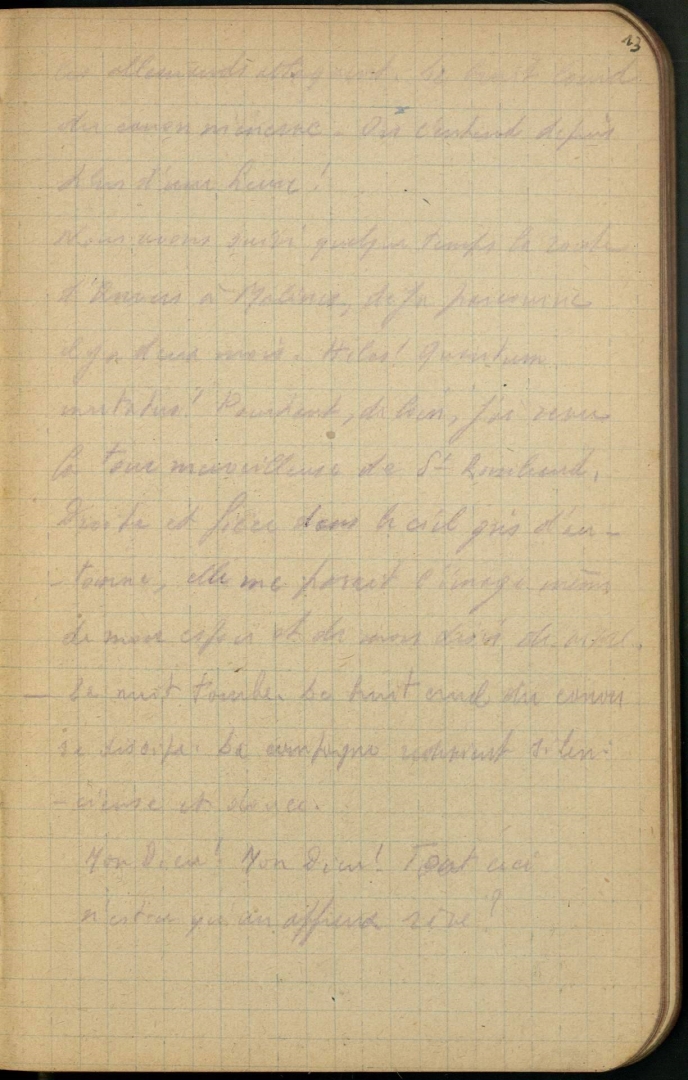 13
les allemands attaquent. Le bruit sourd
du canon menace. On l'entend depuis
plus d'une heure!
Nous avons suivi quelque temps la route
d'Anvers à Malines, déjà parcourue
il y a deux mois. Hélas! Quantum
mutatus! Pourtant, de loin, j'ai revu
la tour merveilleuse de St Rombaud.
Droite et fière dans le ciel gris d'au-
-tomne, elle me parait l'image même
de mon espoir et de mon désir de
— La nuit tombe. Le bruit du canon
se dissipe. La campagne redevient silen-
-cieuse et douce.
Mon Dieu! Mon Dieu! Tout ceci
n'est-ce qu'un affreux rêve?